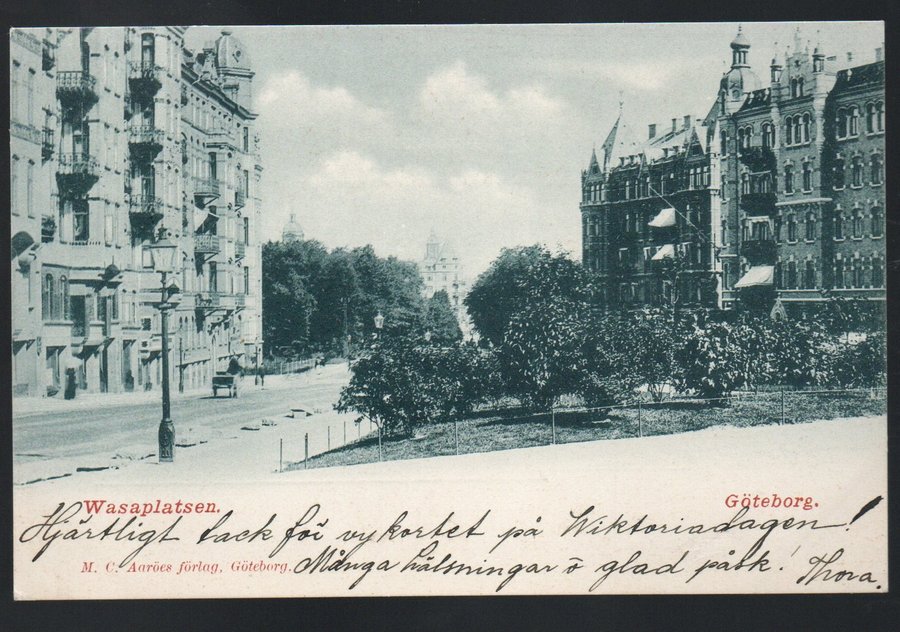 Wasaplatsen. Göteborg.
Hjärtligt tack för vykortet på Wiktoriadagen!
M. C. Aaröes förlag, Göteborg. Många hälsningar o glad påsk! Thora.